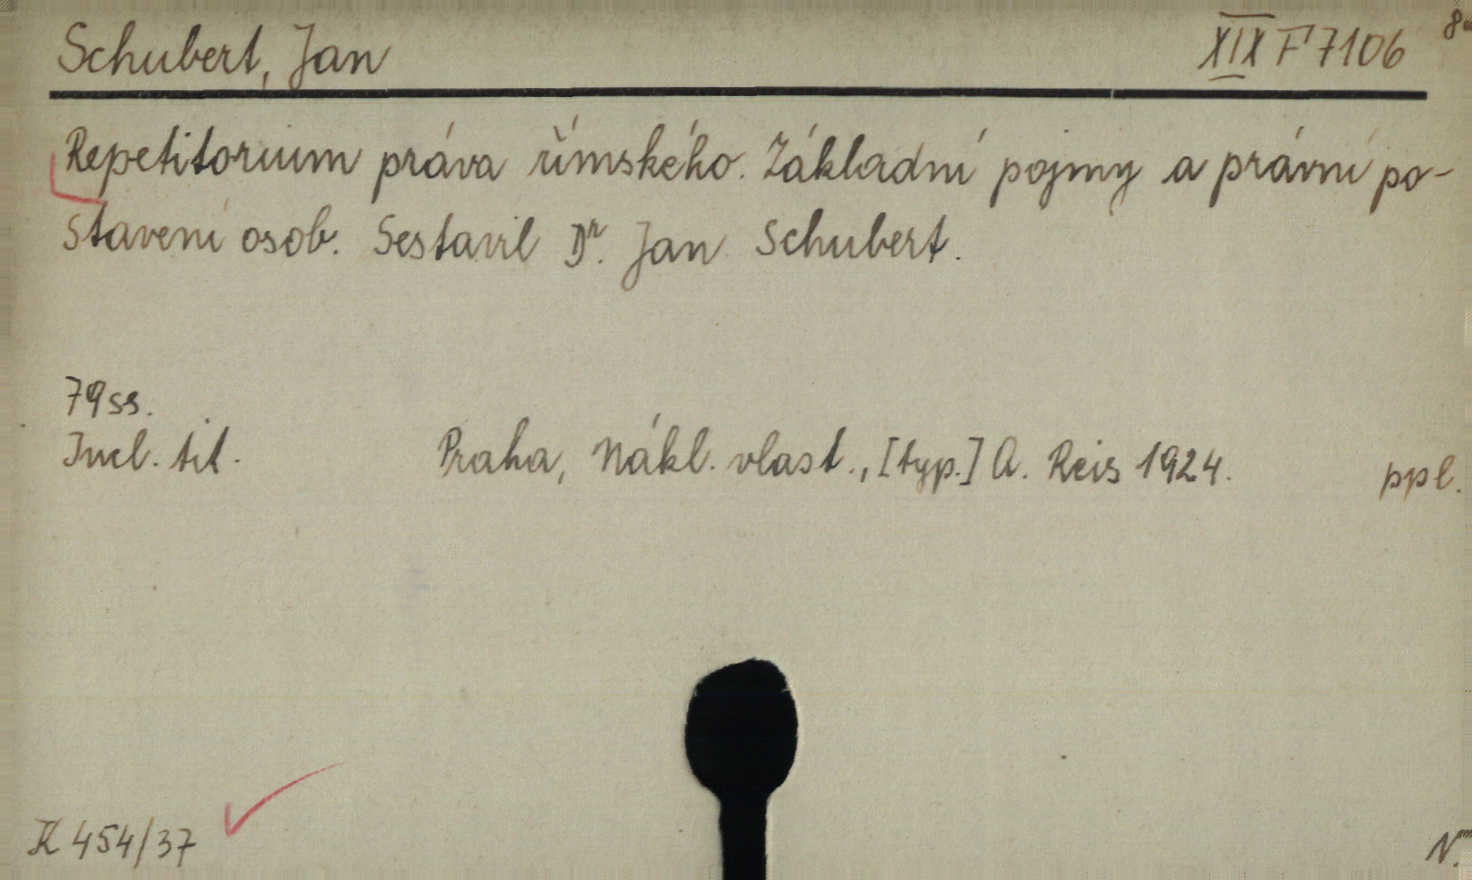 Schubert, Jan XIX F 7106 8°
Repetitorium práva římského. Základní pojmy a právní po-
stavení osob. Sestavil Dr. Jan Schubert.
79 ss.
Incl. tit. Praha, Nákl. vlast., [typ.] A. Reis 1924. ppl.
K 454/37 N.